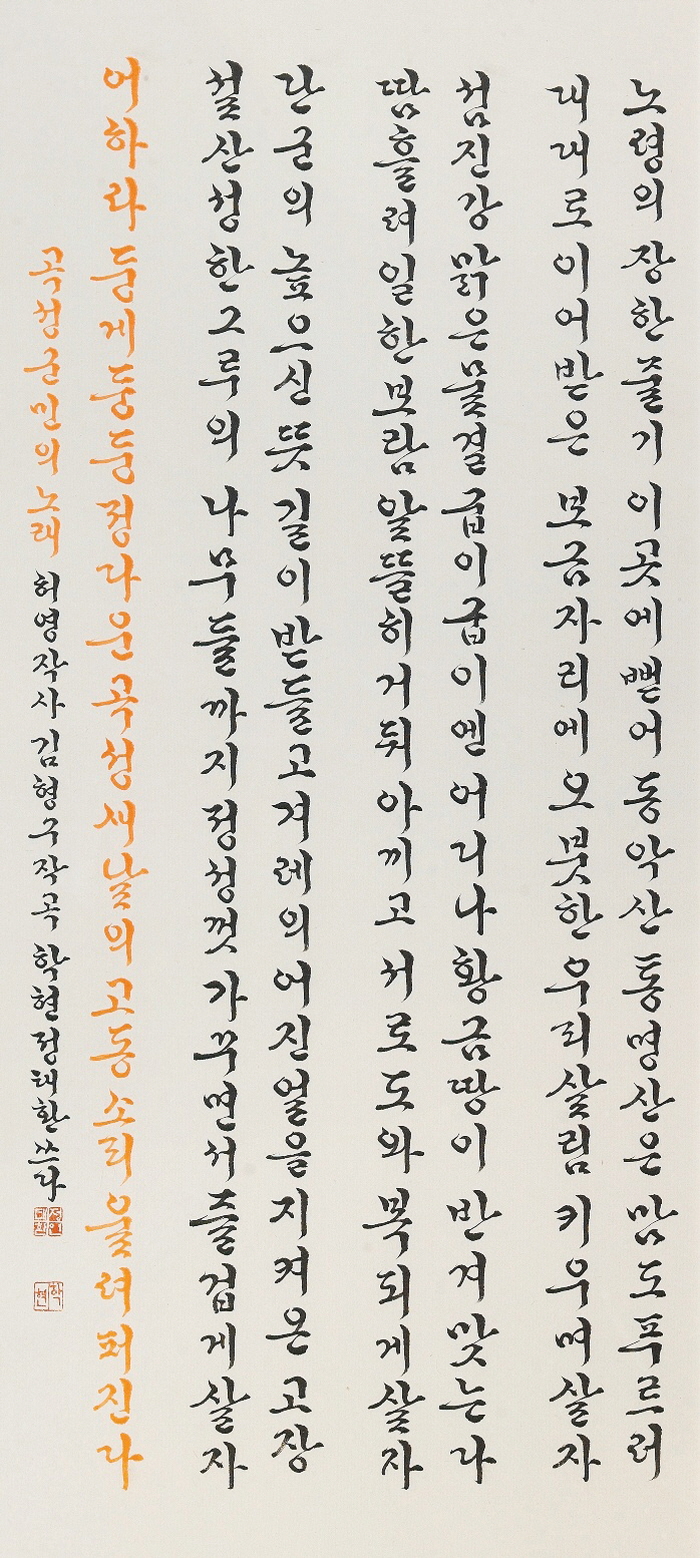 노령의 장한 줄기 이곳에 뻗어 동악산 통명산은 맘도 푸르러
대대로 이어받은 보금자리에 오붓한 우리 살림 키우며 살자
섬진강 맑은 물결 굽이굽이엔 어디나 황금땅이 반겨 맞는다
땀흘려 일한 보람 알뜰히 거둬 아끼고 서로 도와 복되게 살자
단군의 높으신 뜻 길이 받들고 겨레의 어진 얼을 지켜온 고장
설산성 한 그루의 나무들까지 정성껏 가꾸면서 즐겁게 살자
어하라 둥게둥둥 정다운 곡성 새날의 고동소리 울려퍼진다
곡성군민의 노래 허영 작사 김형구 작곡 학현 정태환 쓰다
학현